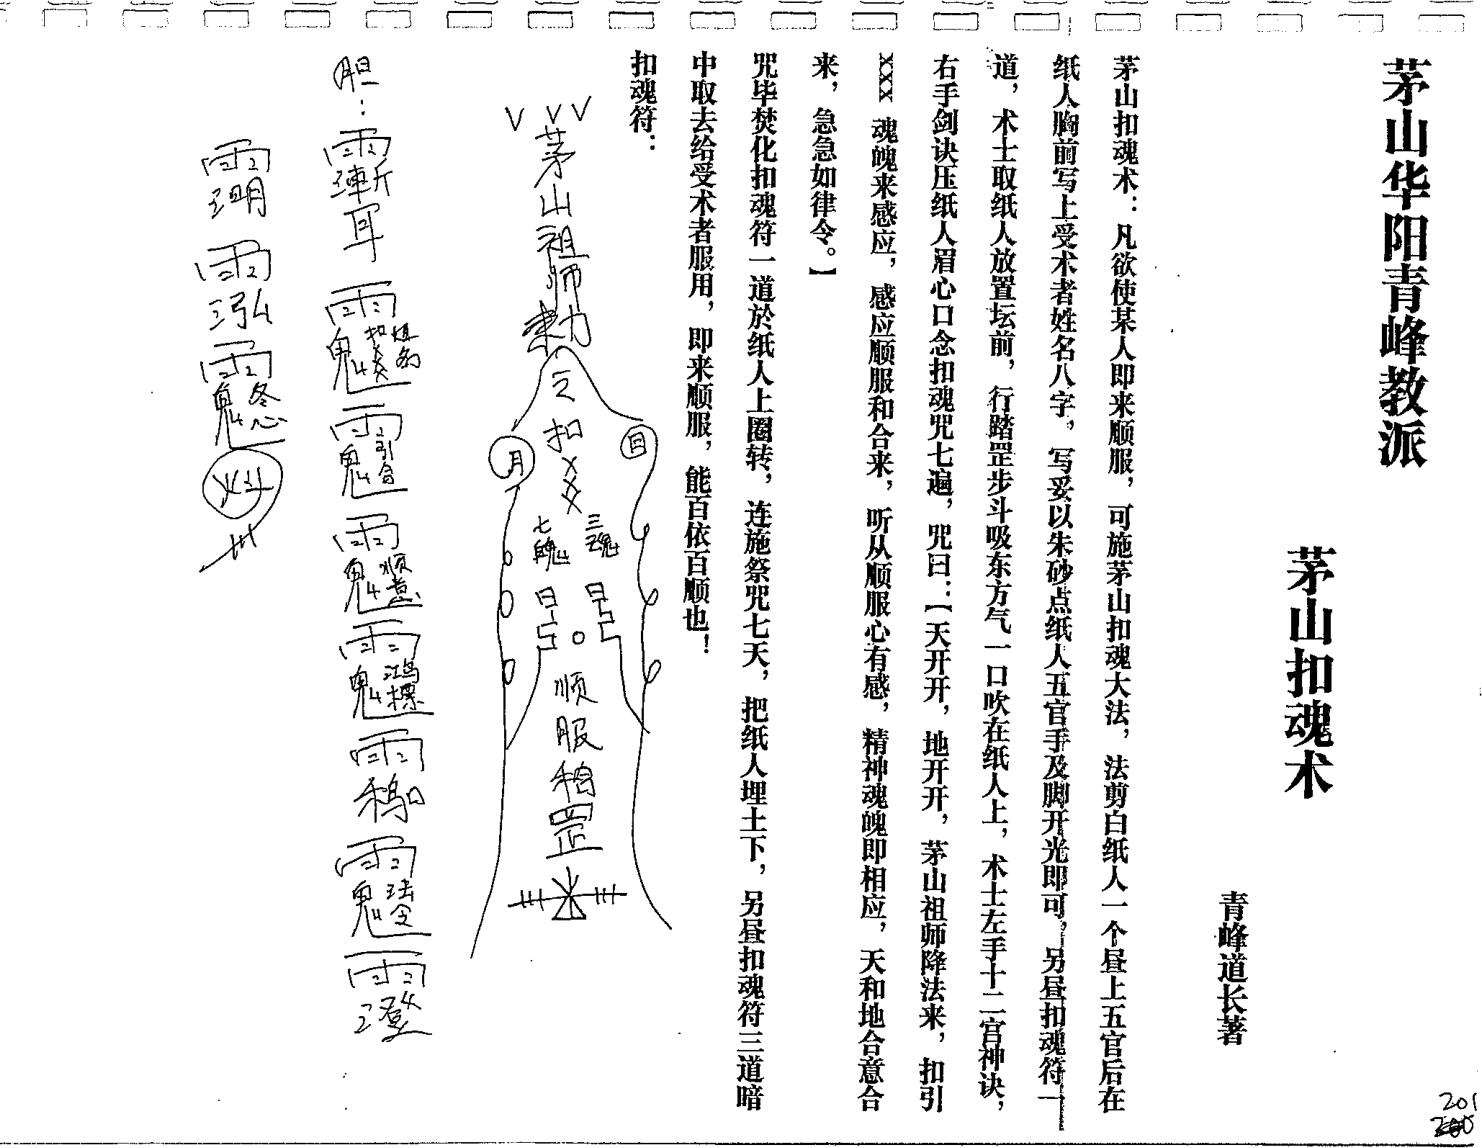 茅山华阳青峰教派
茅山扣魂术
青峰道长著
茅山扣魂术：凡欲使某人即来顺服，可施茅山扣魂大法，法剪白纸人一个昼上五官后在
纸人胸前写上受术者姓名八字，写妥以朱砂点纸人五官手及脚开光即可，另昼扣魂符一
道，术士取纸人放置坛前，行踏罡步斗吸东方气一口吹在纸人上，术士左手十二宫神诀，
右手剑诀压纸人眉心口念扣魂咒七遍，咒曰：【天开开，地开开，茅山祖师降法来，扣引
XXX 魂魄来感应，感应顺服和合来，听从顺服心有感，精神魂魄即相应，天和地合意合
来，急急如律令。】
咒毕焚化扣魂符一道於纸人上圈转，连施祭咒七天，把纸人埋土下，另昼扣魂符三道暗
中取去给受术者服用，即来顺服，能百依百顺也！
扣魂符：
茅山祖师勅令扣
日
月
三魂
七魄
顺服
罡
胆：
201